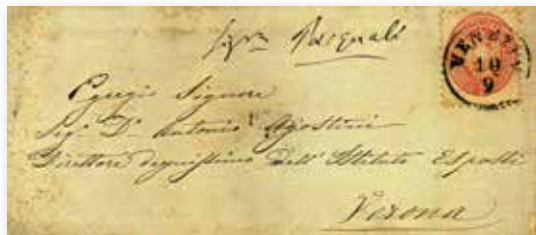 Pasquali
VENEZIA
10
9
Egregio Signore
Sigr Dr Antonio Agostini
Direttore degnissimo dell' Istituto Esposti
Verona